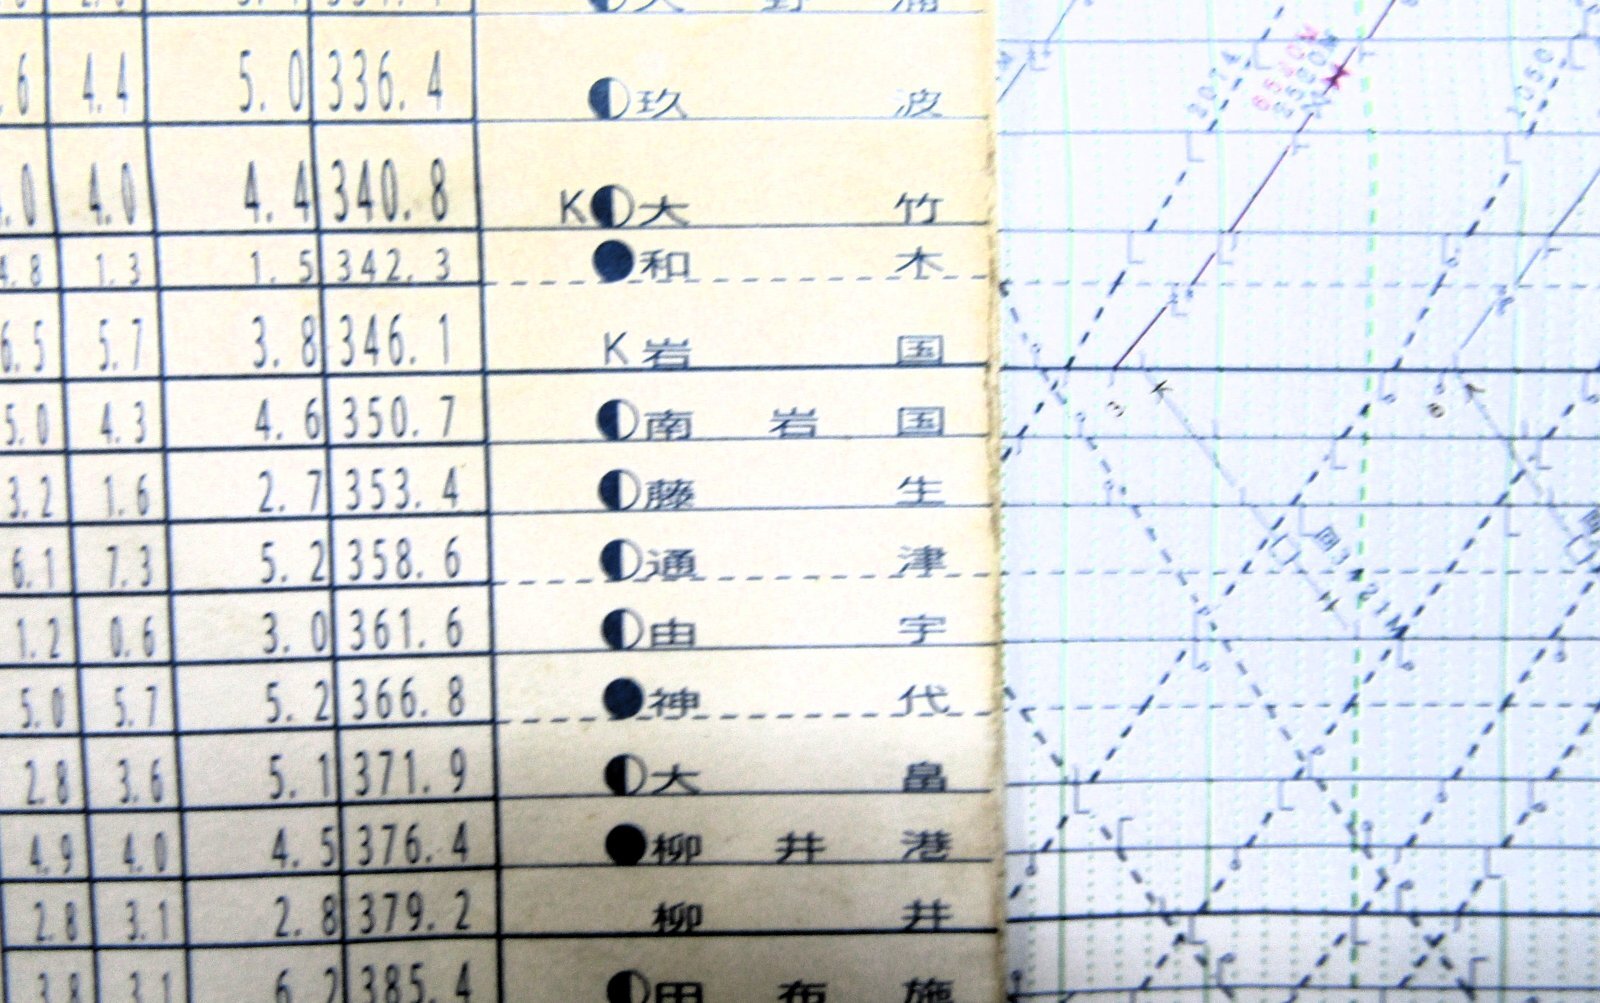 .6 4.4 5.0 336.4 玖波
.0 4.0 4.4 340.8 K 大竹
4.8 1.3 1.5 342.3 和木
6.5 5.7 3.8 346.1 K 岩国
5.0 4.3 4.6 350.7 南岩国
3.2 1.6 2.7 353.4 藤生
6.1 7.3 5.2 358.6 通津
1.2 0.6 3.0 361.6 由宇
5.0 5.7 5.2 366.8 神代
2.8 3.6 5.1 371.9 大畠
4.9 4.0 4.5 376.4 柳井港
2.8 3.1 2.8 379.2 柳井
3.8 3.1 6.2 385.4 田布施
2074
1050
回3421M